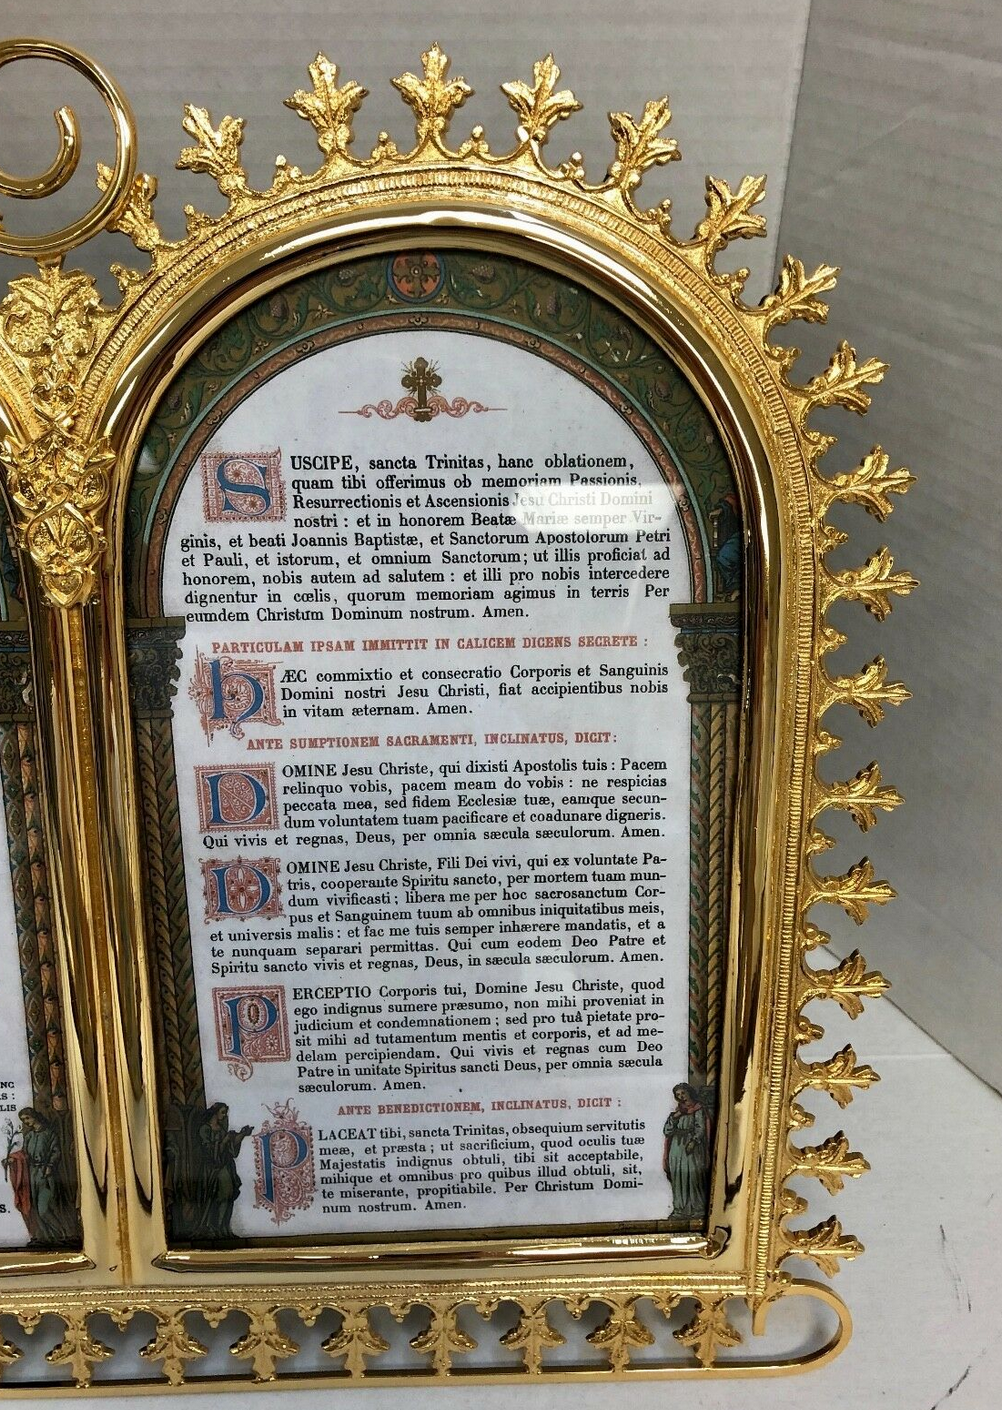 SUSCIPE, sancta Trinitas, hanc oblationem,
quam tibi offerimus ob memoriam Passionis,
Resurrectionis et Ascensionis Jesu Christi Domini
nostri : et in honorem Beatæ Mariæ semper Vir-
ginis, et beati Joannis Baptistæ, et Sanctorum Apostolorum Petri
et Pauli, et istorum, et omnium Sanctorum; ut illis proficiat ad
honorem, nobis autem ad salutem : et illi pro nobis intercedere
dignentur in cœlis, quorum memoriam agimus in terris Per
eumdem Christum Dominum nostrum. Amen.
PARTICULAM IPSAM IMMITTIT IN CALICEM DICENS SECRETE :
HÆC commixtio et consecratio Corporis et Sanguinis
Domini nostri Jesu Christi, fiat accipientibus nobis
in vitam æternam. Amen.
ANTE SUMPTIONEM SACRAMENTI, INCLINATUS, DICIT:
DOMINE Jesu Christe, qui dixisti Apostolis tuis : Pacem
relinquo vobis, pacem meam do vobis : ne respicias
peccata mea, sed fidem Ecclesiæ tuæ, eamque secun-
dum voluntatem tuam pacificare et coadunare digneris.
Qui vivis et regnas, Deus, per omnia sæcula sæculorum. Amen.
DOMINE Jesu Christe, Fili Dei vivi, qui ex voluntate Pa-
tris, cooperante Spiritu sancto, per mortem tuam mun-
dum vivificasti ; libera me per hoc sacrosanctum Cor-
pus et Sanguinem tuum ab omnibus iniquitatibus meis,
et universis malis : et fac me tuis semper inhærere mandatis, et a
te nunquam separari permittas. Qui cum eodem Deo Patre et
Spiritu sancto vivis et regnas, Deus, in sæcula sæculorum. Amen.
PERCEPTIO Corporis tui, Domine Jesu Christe, quod
ego indignus sumere præsumo, non mihi proveniat in
judicium et condemnationem ; sed pro tuâ pietate pro-
sit mihi ad tutamentum mentis et corporis, et ad me-
delam percipiendam. Qui vivis et regnas cum Deo
Patre in unitate Spiritus sancti Deus, per omnia sæcula
sæculorum. Amen.
ANTE BENEDICTIONEM, INCLINATUS, DICIT :
PLACEAT tibi, sancta Trinitas, obsequium servitutis
meæ, et præsta ; ut sacrificium, quod oculis tuæ
Majestatis indignus obtuli, tibi sit acceptabile,
mihique et omnibus pro quibus illud obtuli, sit,
te miserante, propitiabile. Per Christum Domi-
num nostrum. Amen.